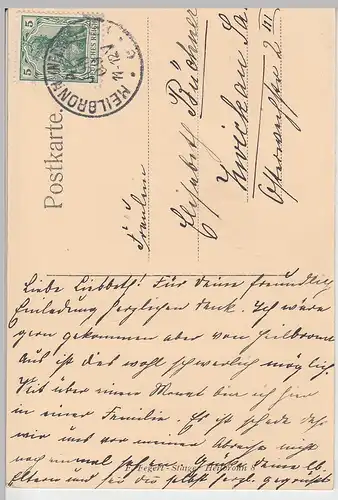 5
DEUTSCHES REICH
HEILBRONN
11-12 V
Postkarte.
Fräulein
Elisabeth Büchner
Zwickau Sa.
2 III
Liebe Liesbeth! Für deine freundlich
Einladung herzlichen Dank. Ich wäre
gern gekommen aber von Heilbronn
aus ist das wohl schwerlich möglich
Seit über einen Monat bin ich hier
in einer Familie. Es ist schade daß
wir uns vor meiner Abreise nicht
noch einmal
Eltern und sei du selbst herzl. gegrüßt